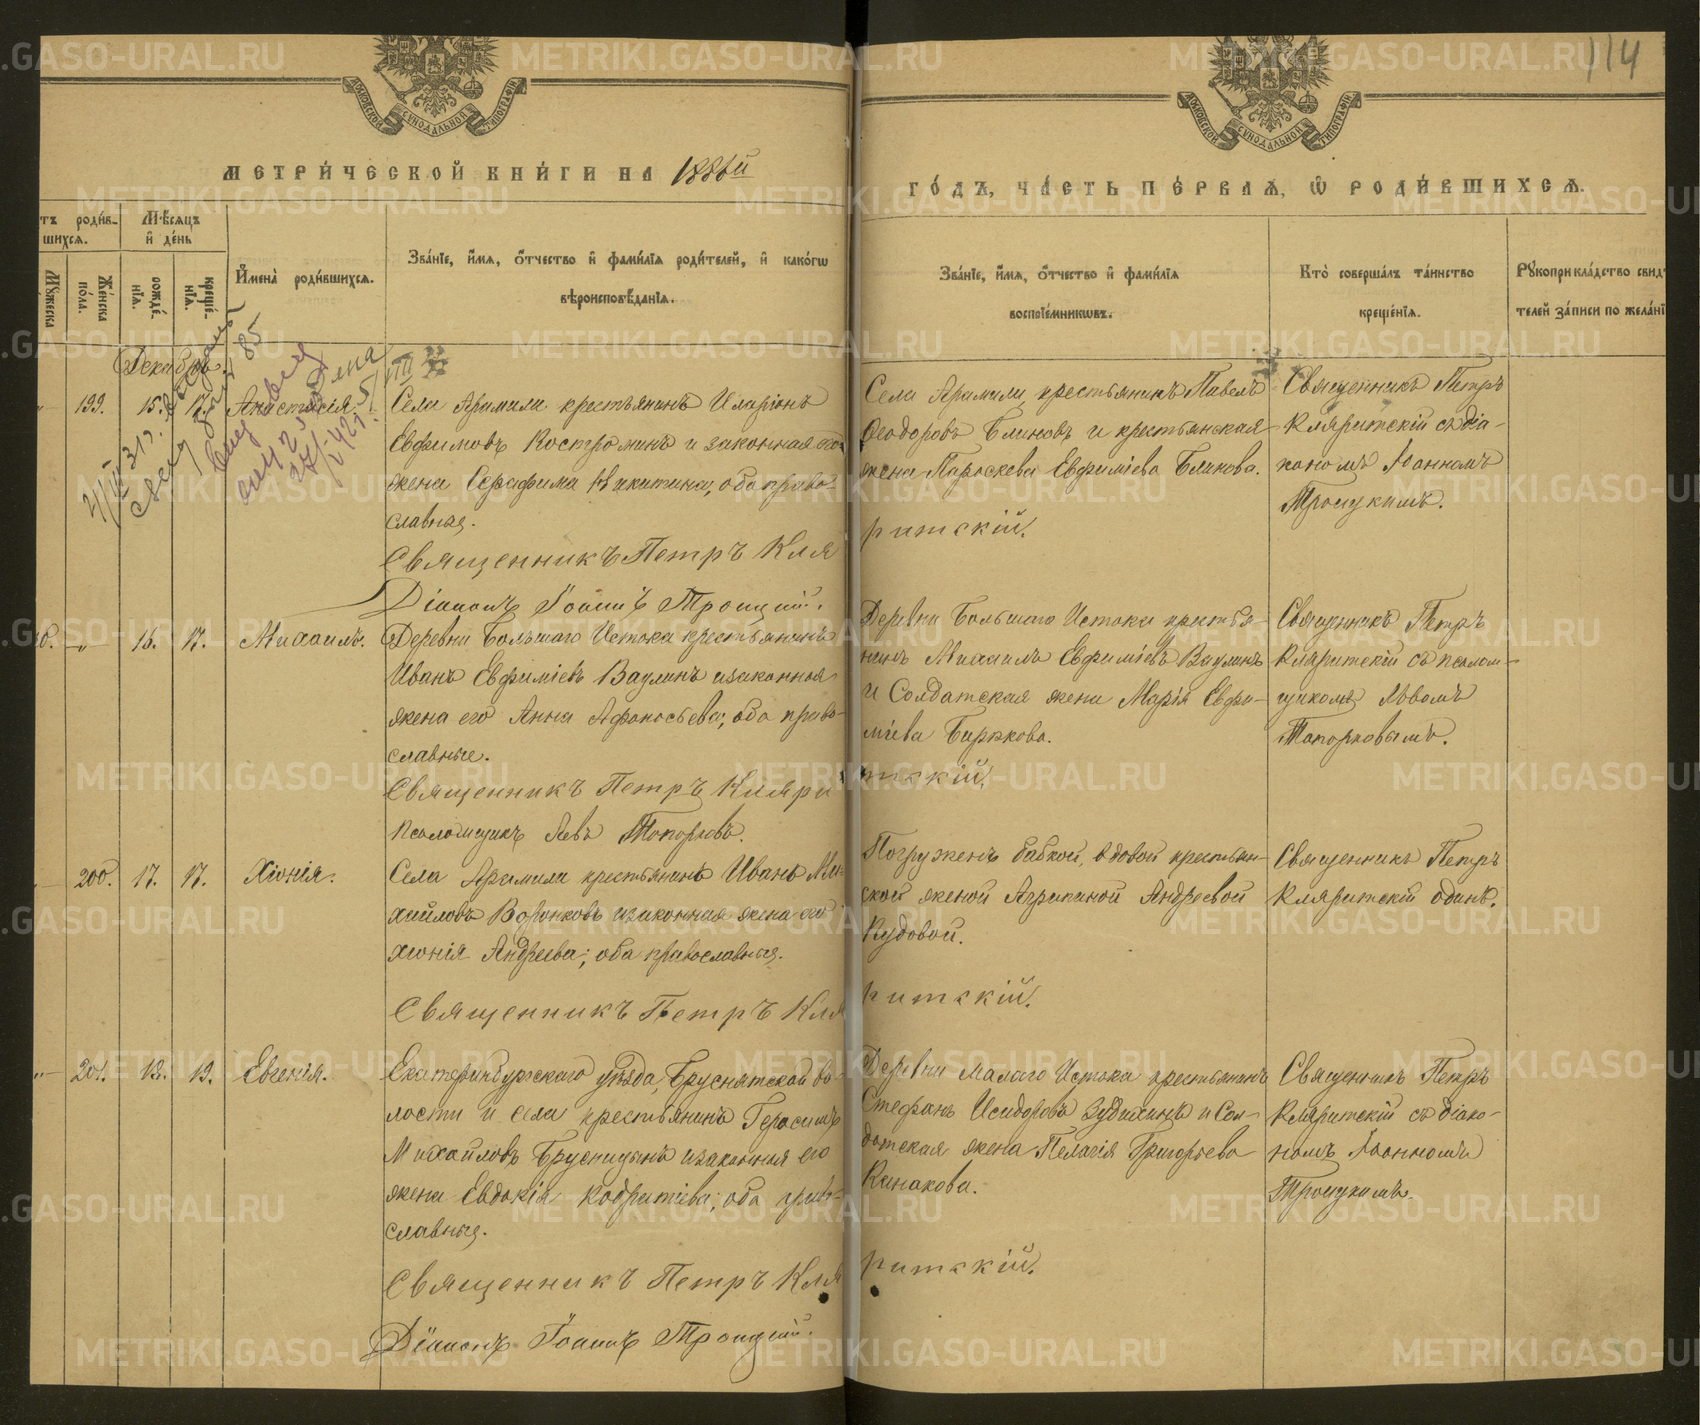 114
МОСКОВСКОЙ СѴНОДАЛЬНОЙ ТИПОГРАФІИ
МОСКОВСКОЙ СѴНОДАЛЬНОЙ ТИПОГРАФІИ
МЕТРИ́ЧЕСКОЙ КНИ́ГИ НА 1886й
ГО́ДЪ, ЧА́СТЬ ПЕ́РВАЯ, Ѡ РОДИ́ВШИХСЯ.
тъ роди́в-
шихся.
Мѣсяцъ
и де́нь
Му́жеска
Же́нска по́ла.
рожде́-
нїя.
креще́-
нїя.
И҆мена̀ роди́вшихся.
Зва́нїе, и҆́мя, ѻ҆́тчество и҆ фами́лїя роди́телей, и҆ како́гѡ
вѣроисповѣ́данїя.
Зва́нїе, и҆́мя, ѻ҆́тчество и҆ фами́лїя
воспрїе́мникѡвъ.
Кто̀ соверша́лъ та́инство
креще́нїя.
Рꙋкоприкла́дство свид
телей за́писи по жела́нї
Декабрь.
199. 15. 17. Анастасія.
Села Арамили крестьянинъ Иларіонъ
Евфимовъ Костроминъ и законная его
жена Серафима Никитина, оба право-
славные.
Священникъ Петръ Кля
Діаконъ Іоаннъ Троицкій.
Села Арамили крестьянинъ Павелъ
Ѳеодоровъ Блиновъ и крестьянская
жена Параскева Евфиміева Блинова.
ритскій.
Священникъ Петръ
Кляритскій съ діа-
кономъ Іоанномъ
Троицкимъ.
16. 17. Михаилъ.
Деревни Большаго Истока крестьянинъ
Иванъ Евфиміевъ Ваулинъ и законная
жена его Анна Афанасьева; оба право-
славные.
Священникъ Петръ Кляри
Псаломщикъ Левъ Топорковъ.
Деревни Большаго Истока крестья-
нинъ Михаилъ Евфиміевъ Ваулинъ
и Солдатская жена Марія Евфи-
міева Бирюкова.
тскій.
Священникъ Петръ
Кляритскій съ псалом-
щикомъ Львомъ
Топорковымъ.
200. 17. 17. Хіонія.
Села Арамили крестьянинъ Иванъ Ми-
хайловъ Воронковъ и законная жена его
Хіонія Андреева; оба православные.
Священникъ Петръ Кля
Погруженъ бабкой, вдовой крестьян-
ской женой Агрипиной Андреевой
Кудовой.
ритскій.
Священникъ Петръ
Кляритскій одинъ.
201. 18. 19. Евгенія.
Екатеринбургскаго уѣзда, Бруснятской во-
лости и села крестьянинъ Герасимъ
Михайловъ Брусницынъ и законная его
жена Евдокія Кодратіева; оба право-
славные.
Священникъ Петръ Кля
Діаконъ Іоаннъ Троицкій.
Деревни Малаго Истока крестьянинъ
Стефанъ Исидоровъ Зудихинъ и Сол-
датская жена Пелагія Григорьева
Канакова.
ритскій.
Священникъ Петръ
Кляритскій съ діако-
номъ Іоанномъ
Троицкимъ.
METRIKI.GASO-URAL.RU